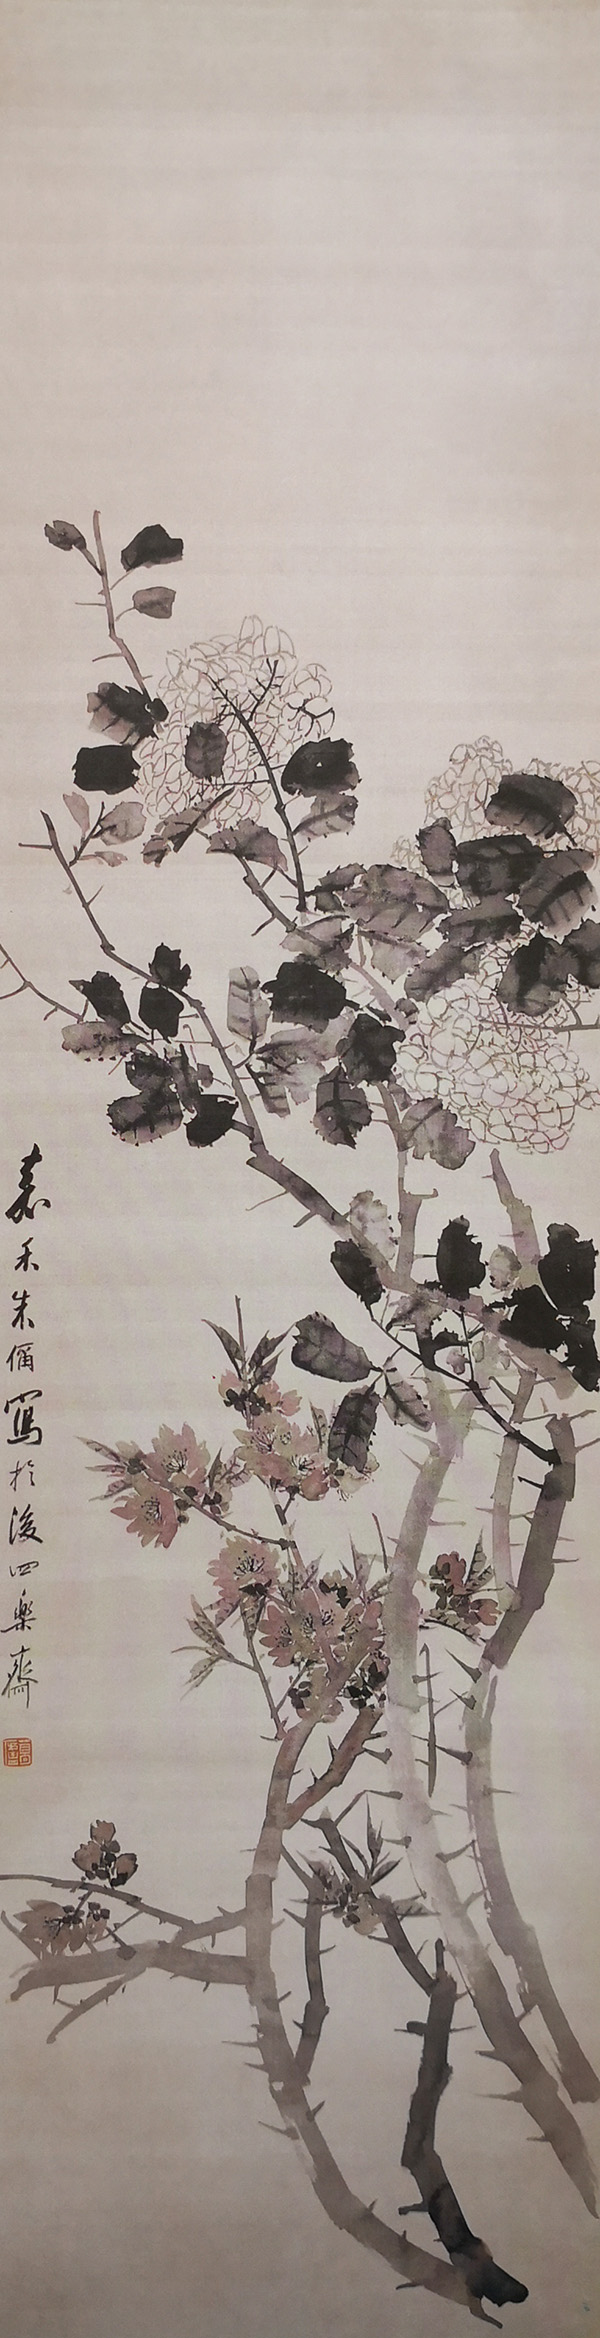 嘉禾朱偁寫於後四樂齋